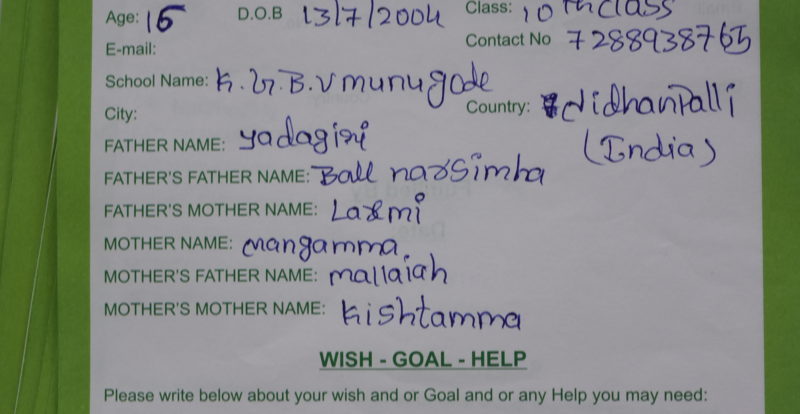 Age: 15 D.O.B 13/7/2004 Class: 10th class
E-mail: Contact No 7288938765
School Name: K.G.B.V munugode
City: Country: didhanpalli
(India)
FATHER NAME: yadagiri
FATHER'S FATHER NAME: Ball narsimha
FATHER'S MOTHER NAME: Laxmi
MOTHER NAME: mangamma
MOTHER'S FATHER NAME: mallaiah
MOTHER'S MOTHER NAME: kishtamma
WISH - GOAL - HELP
Please write below about your wish and or Goal and or any Help you may need: